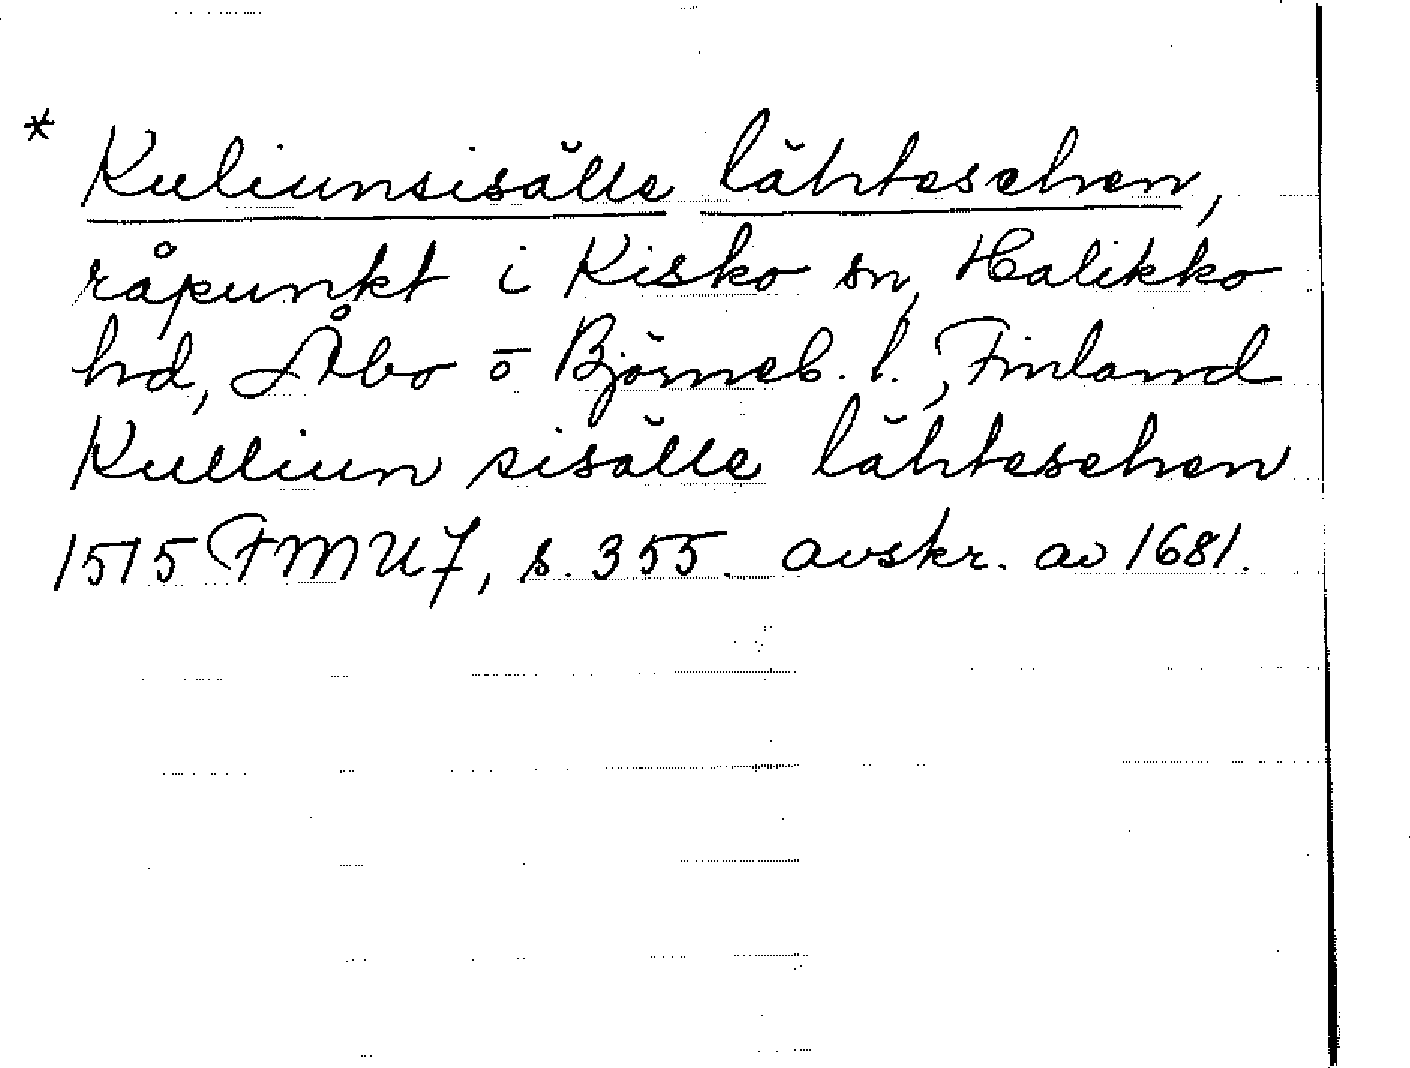 * Kuliunsisälle lähtesehen,
råpunkt i Kisko sn, Halikko
hd, Åbo o Björneb. l., Finland
Kulliun sisälle lähtesehen
1515 FMU 7, s. 355. avskr. av 1681.